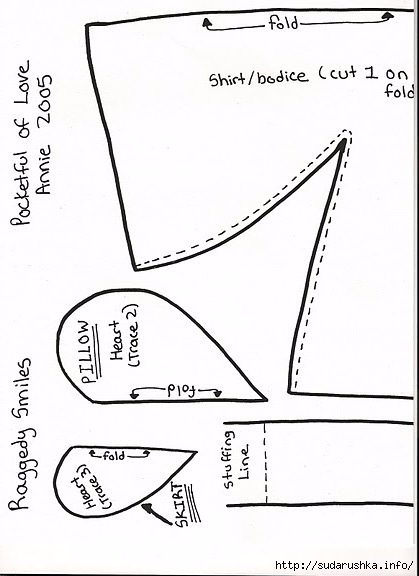 fold
Shirt/bodice (cut 1 on
fold
Pocketful of Love
Annie 2005
PILLOW
Heart
(Trace 2)
fold
Raggedy Smiles
fold
Heart
(Trace 3)
SKIRT
Stuffing
Line
http://sudarushka.info/